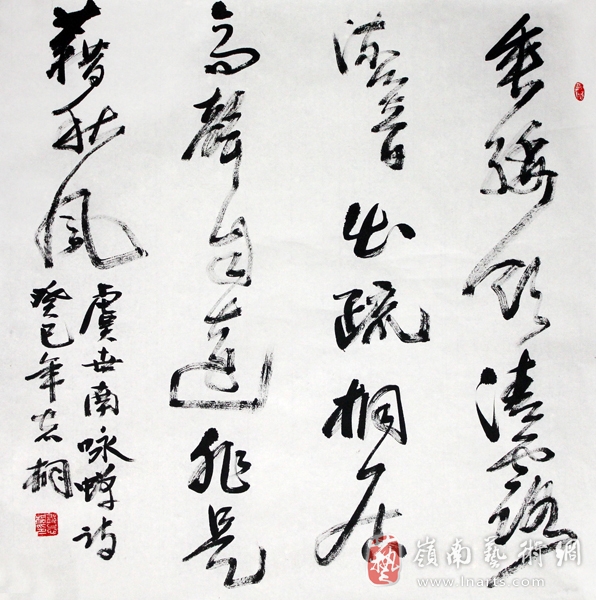 垂緌飲清露
流音出疏桐居
高聲自遠非是
藉秋風
虞世南咏蟬詩
癸巳年
桐
藝
嶺南藝術網
www.lnarts.com